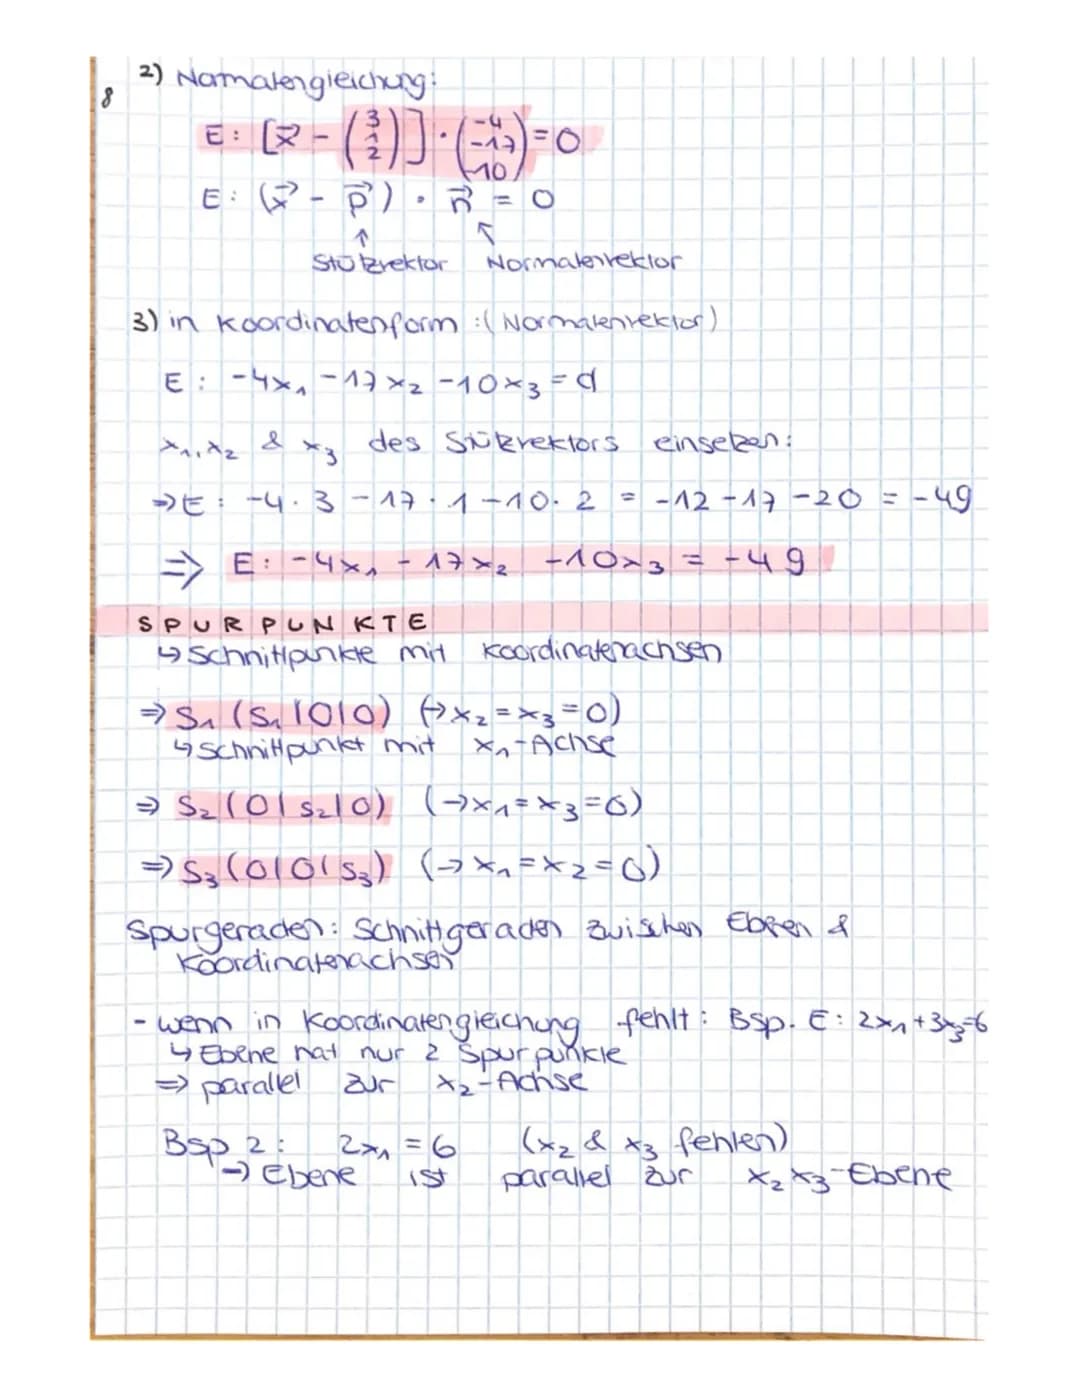 8
2) Normalengleichung:
E: [x⃗ - (3 1 2)] · (-4 -17 -10) = 0
E: (x⃗ - p⃗) · n⃗ = 0
↑ ↖
Stützvektor Normalenvektor
3) in Koordinatenform :( Normalenvektor)
E: -4x₁ -17x₂ -10x₃ = d
x₁, x₂ & x₃ des Stützvektors einsetzen:
⇒ E: -4·3 -17·1 -10·2 = -12 -17 -20 = -49
⇒ E: -4x₁ - 17x₂ -10x₃ = -49
SPURPUNKTE
↳ Schnittpunkte mit Koordinatenachsen
⇒ S₁ (s₁|0|0) (→x₂=x₃=0)
↳ Schnittpunkt mit x₁-Achse
⇒ S₂ (0|s₂|0) (→x₁=x₃=0)
⇒ S₃ (0|0|s₃) (→x₁=x₂=0)
Spurgeraden: Schnittgeraden zwischen Ebenen &
Koordinatenachsen
- wenn in Koordinatengleichung fehlt: Bsp. E: 2x₁+3x₃=6
↳ Ebene hat nur 2 Spurpunkte
⇒ parallel zur x₂-Achse
Bsp 2: 2x₁ = 6 (x₂ & x₃ fehlen)
→ Ebene ist parallel zur x₂x₃-Ebene